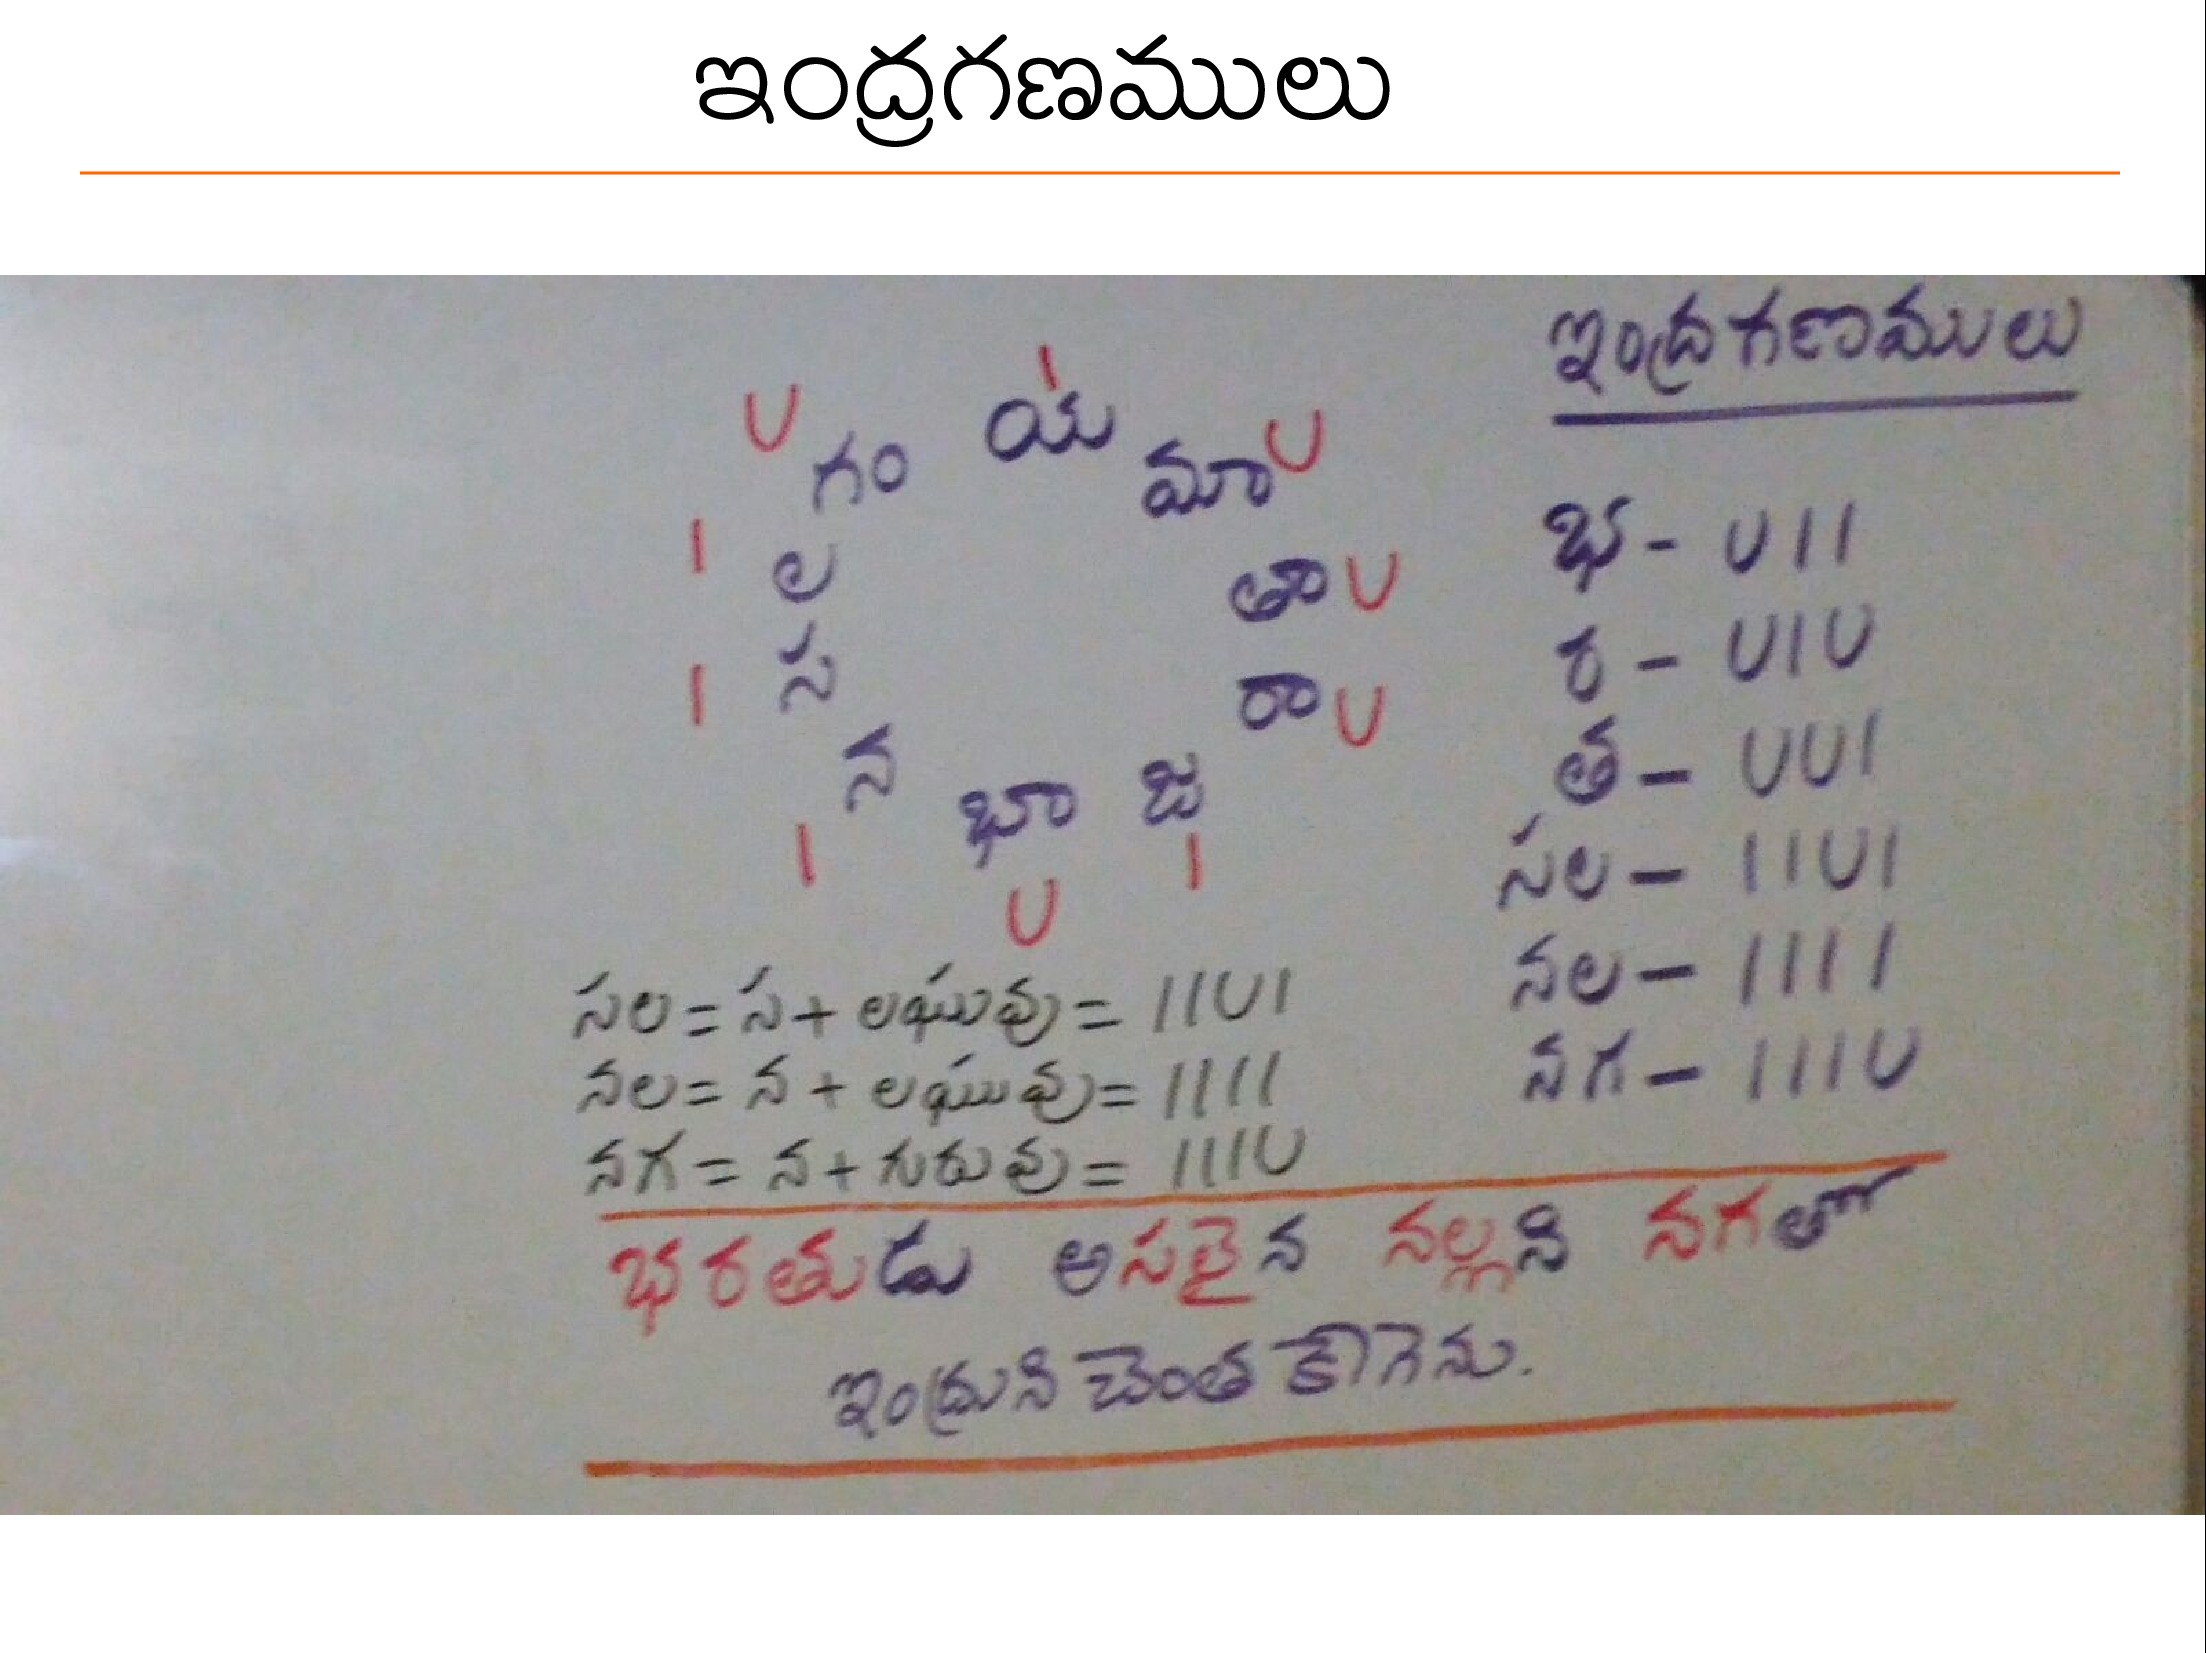 ఇంద్రగణములు
ఇంద్రగణములు
U గం
I య
మా U
I ల
తా U
I స
రా U
న I
భా U
జ I
భ - U I I
ర - U I U
త - U U I
సల - I I U I
నల - I I I I
నగ - I I I U
సల = స + లఘువు = I I U I
నల = న + లఘువు = I I I I
నగ = న + గురువు = I I I U
భరతుడు అసలైన నల్లని నగతో
ఇంద్రుని చెంత కేగెను.